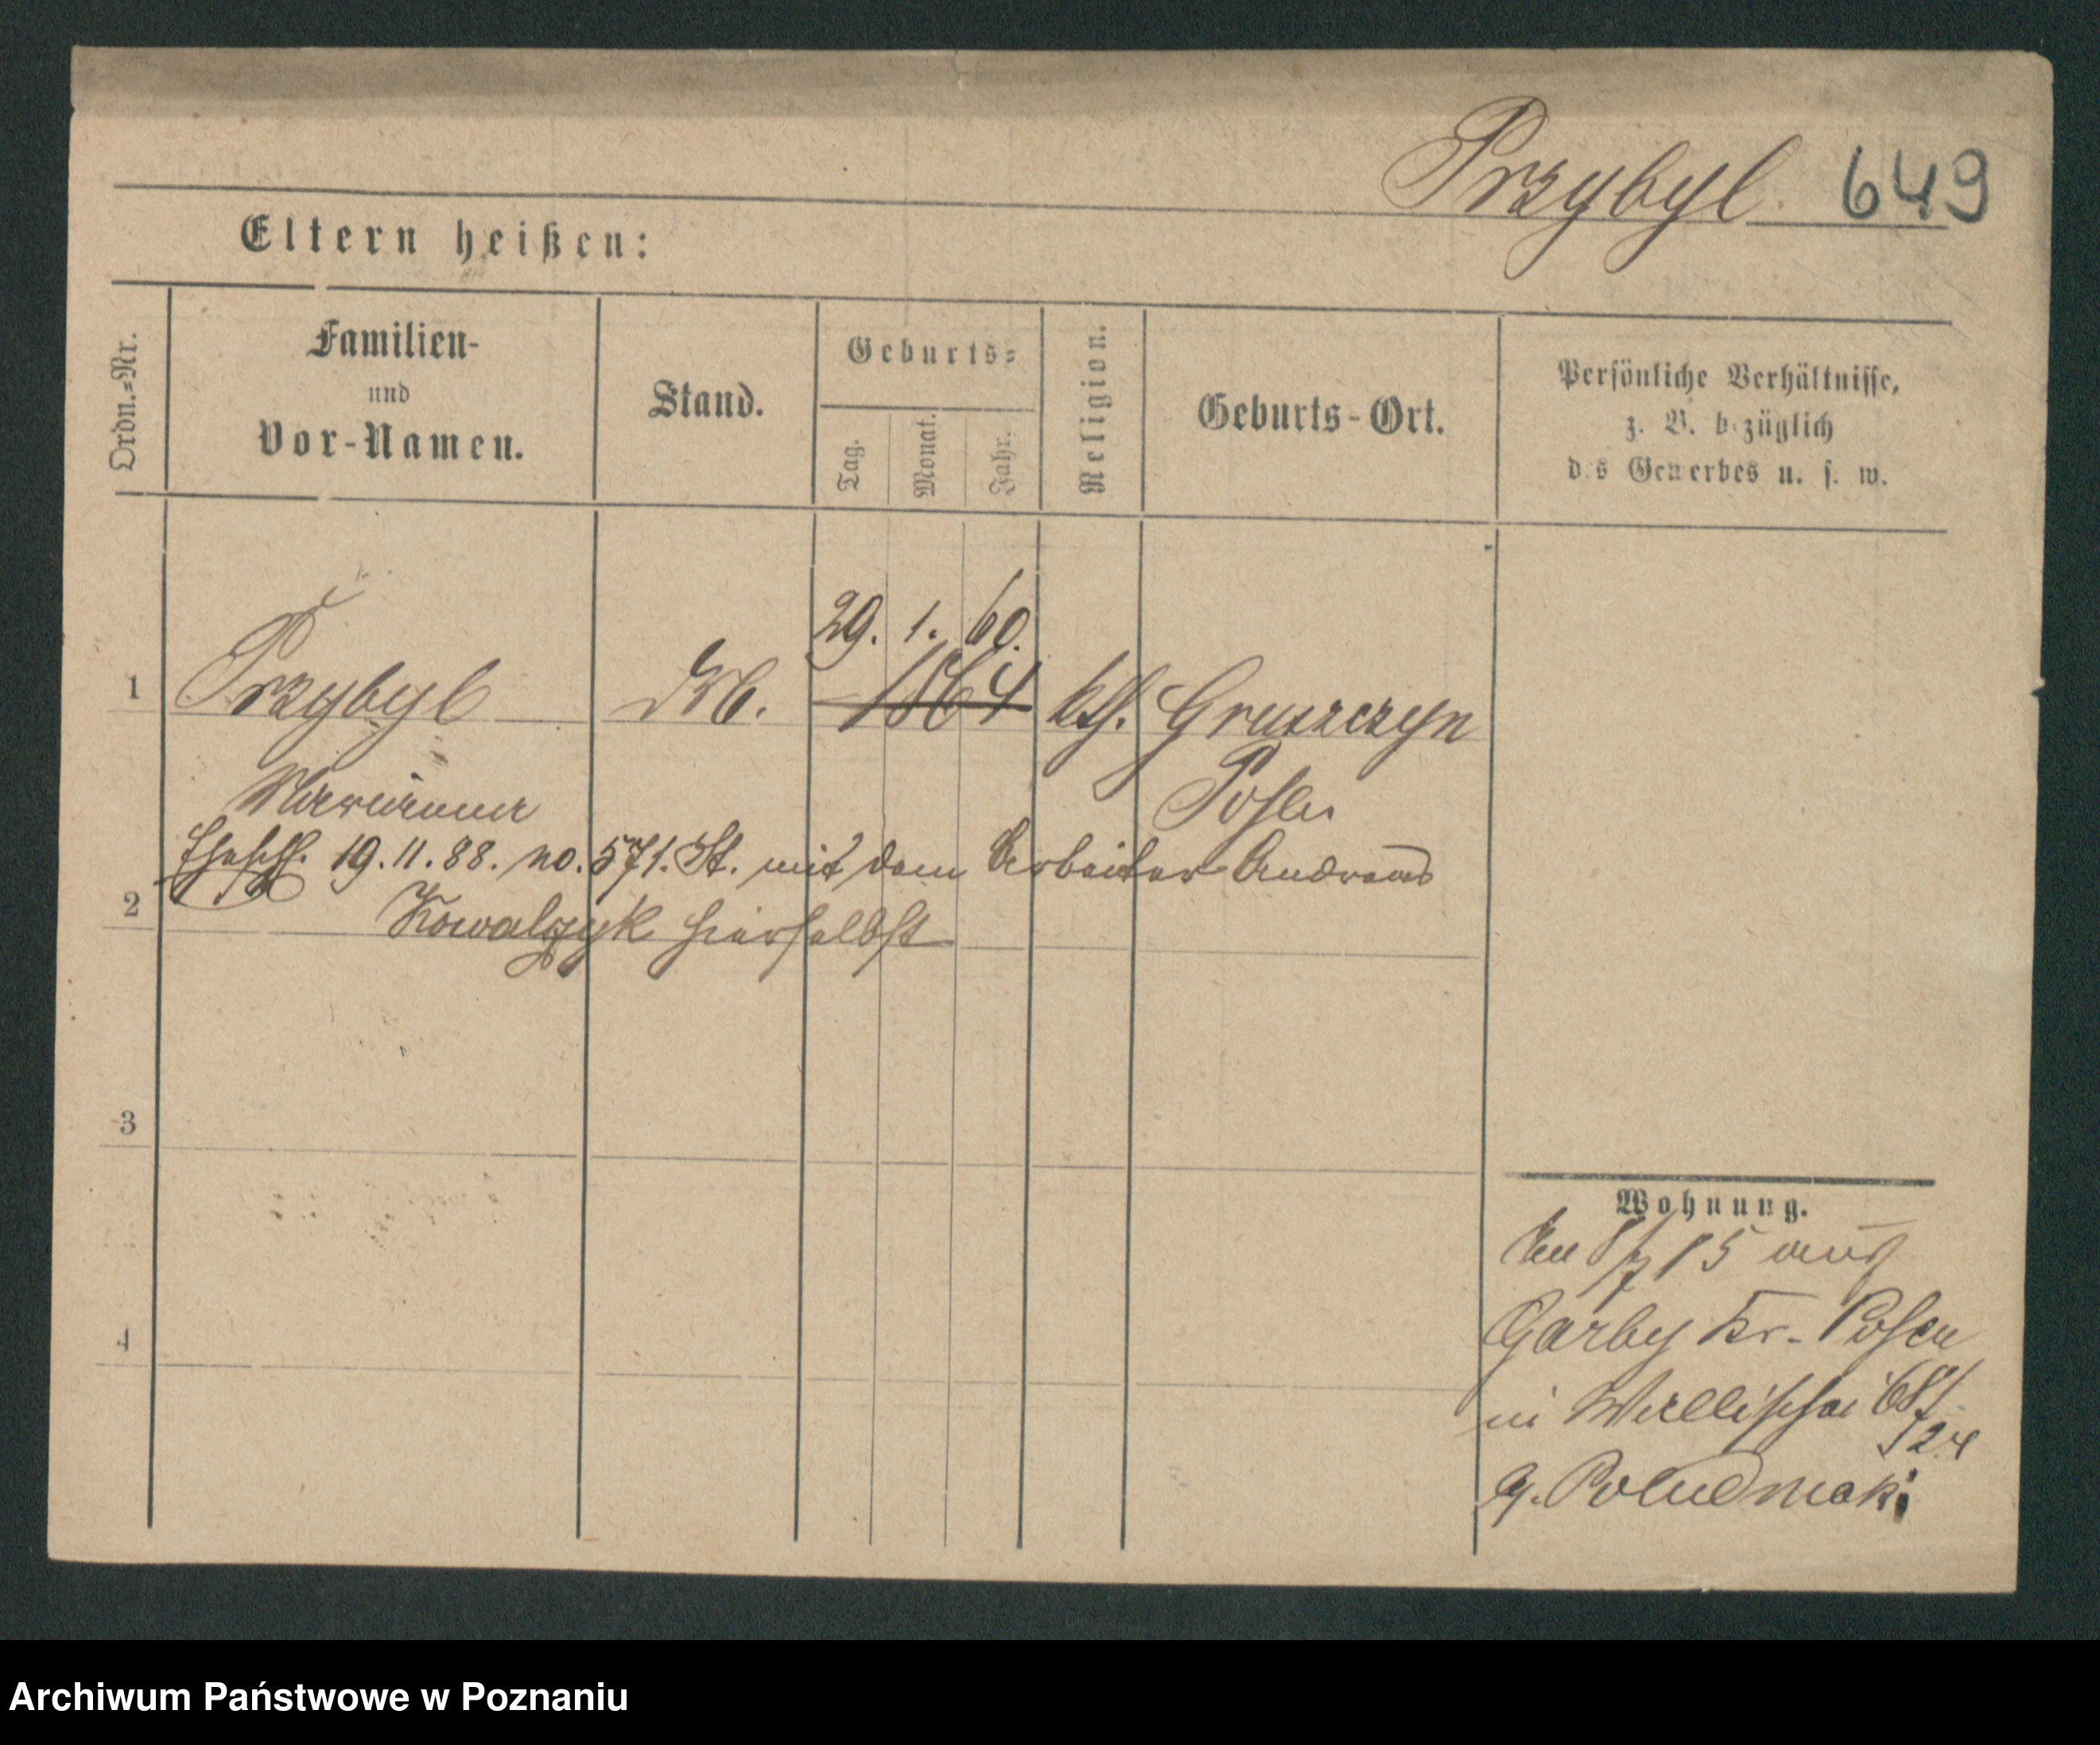 Przybyl. 649
Eltern heißen:
Ordn.=Nr.
Familien-
und
Vor-Namen.
Stand.
Geburts=
Tag.
Monat.
Jahr.
Religion.
Geburts-Ort.
Persönliche Verhältnisse,
z. B. bezüglich
des Gewerbes u. s. w.
29. 1. 60.
1 Przybyl 1864 kth. Gruszczyn
Marianna Posen
Ehesch. 19.11.88. no. 571. St. mit dem Arbeiter Andreas
2 Kowalczyk hierselbst
3
4
Wohnung.
aus
Garby Kr. Posen
in Wallischei 68/
Archiwum Państwowe w Poznaniu